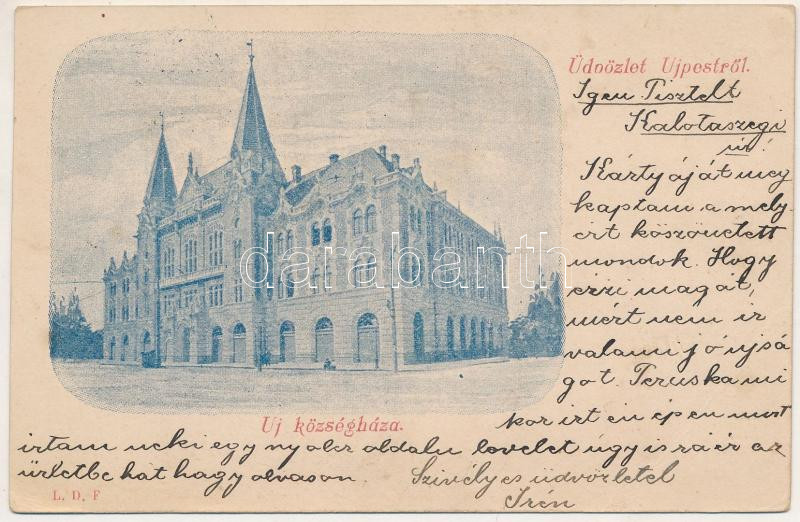 Üdvözlet Ujpestről.
Igen Tisztelt
Kalotaszegi
úr!
Kártyáját meg
kaptam a mely-
ért köszönetett
mondok. Hogy
érzi magát,
mért nem ir
valami jó újsá
got. Teruska mi
kor irt én épen most
irtam neki egy nyolcz oldalu levelet úgy is ráér az
üzletbe hat hagy olvason.
Szivélyes üdvözlettel
Irén
Uj községháza.
L. D. F
darabanth